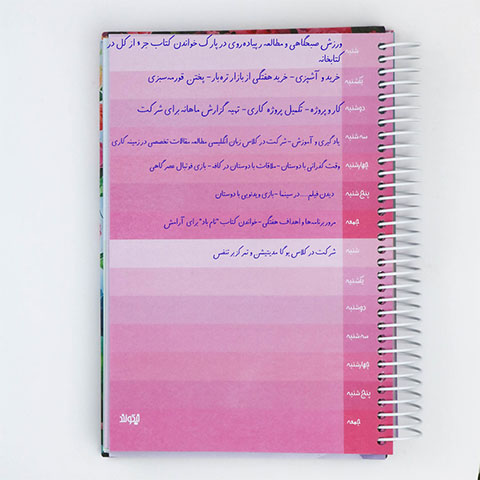 ورزش صبحگاهی و مطالعه ر پیاده‌روی در پارک خواندن کتاب جزء از کل در
کتابخانه
شنبه
خرید و آشپزی - خرید هفتگی از بازار تره‌بار - پختن قورمه‌سبزی
یکشنبه
کار و پروژه - تکمیل پروژه کاری - تهیه گزارش ماهانه برای شرکت
دوشنبه
یادگیری و آموزش - شرکت در کلاس زبان انگلیسی مطالعه مقالات تخصصی در زمینه کاری
سه شنبه
وقت گذرانی با دوستان - ملاقات با دوستان در کافه - بازی فوتبال عصرگاهی
چهارشنبه
دیدن فیلم.... در سینما - بازی ویدئویی با دوستان
پنج شنبه
مرور برنامه‌ها و اهداف هفتگی - خواندن کتاب "نام باد" برای آرامش
جمعه
شرکت در کلاس یوگا مدیتیشن و تمرکز بر تنفس
شنبه
یکشنبه
دوشنبه
سه شنبه
چهارشنبه
پنج شنبه
جمعه